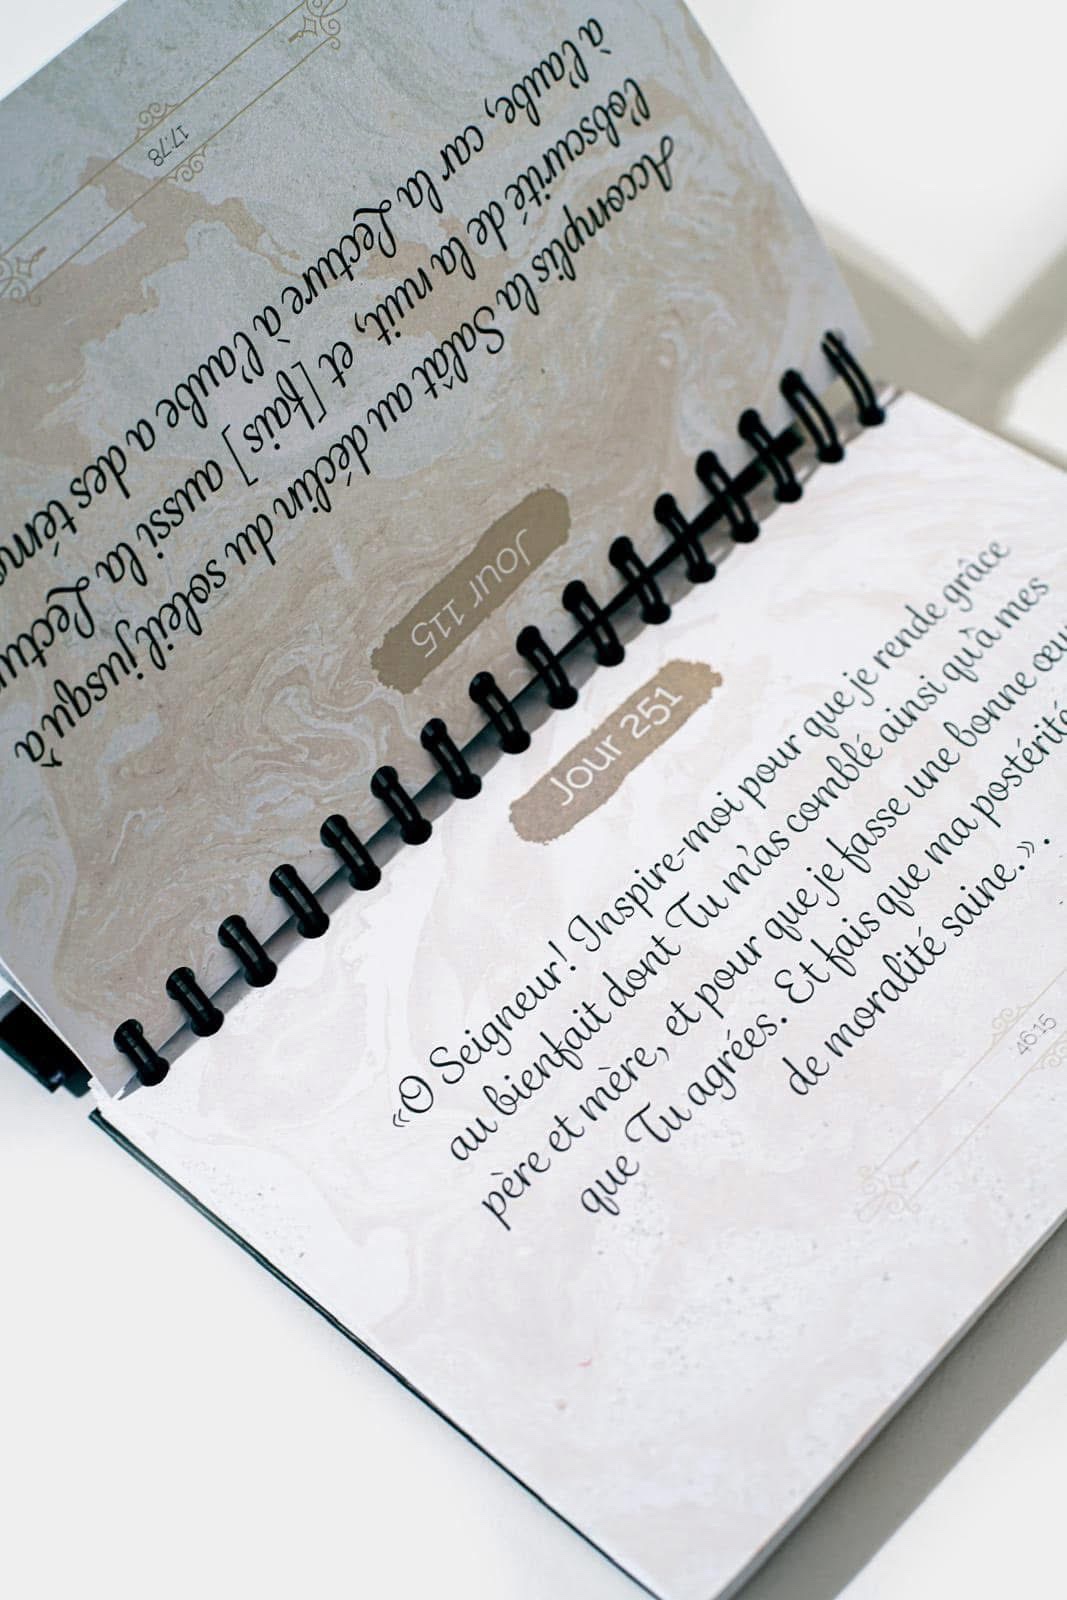 Jour 115
Accomplis la Salât au déclin du soleil jusqu'à
l'obscurité de la nuit, et [fais] aussi la
à l'aube, car la Lecture à l'aube a des
17:78
Jour 251
«O Seigneur! Inspire-moi pour que je rende grâce
au bienfait dont Tu m'as comblé ainsi qu'à mes
père et mère, et pour que je fasse une bonne
que Tu agrées. Et fais que ma postérité
de moralité saine.».
46:15